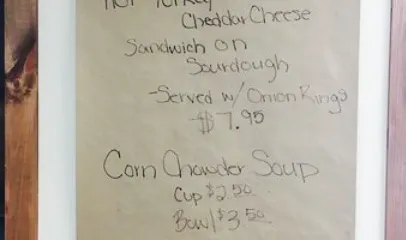 Hot Turkey
Cheddar Cheese
Sandwich on
Sourdough
-Served w/ Onion Rings
-$7.95
Corn Chowder Soup
Cup $2.50
Bowl $3.50